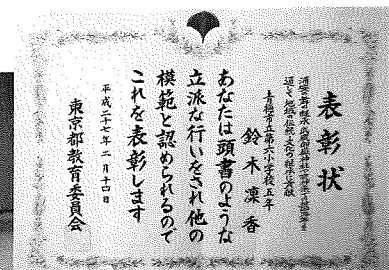 表彰状
通して地域の伝統文化の継承に貢献
青梅市立第六小学校五年
鈴木凜香
あなたは頭書のような
立派な行いをされ他の
模範と認められるので
これを表彰します
平成二十七年二月十四日
東京都教育委員会